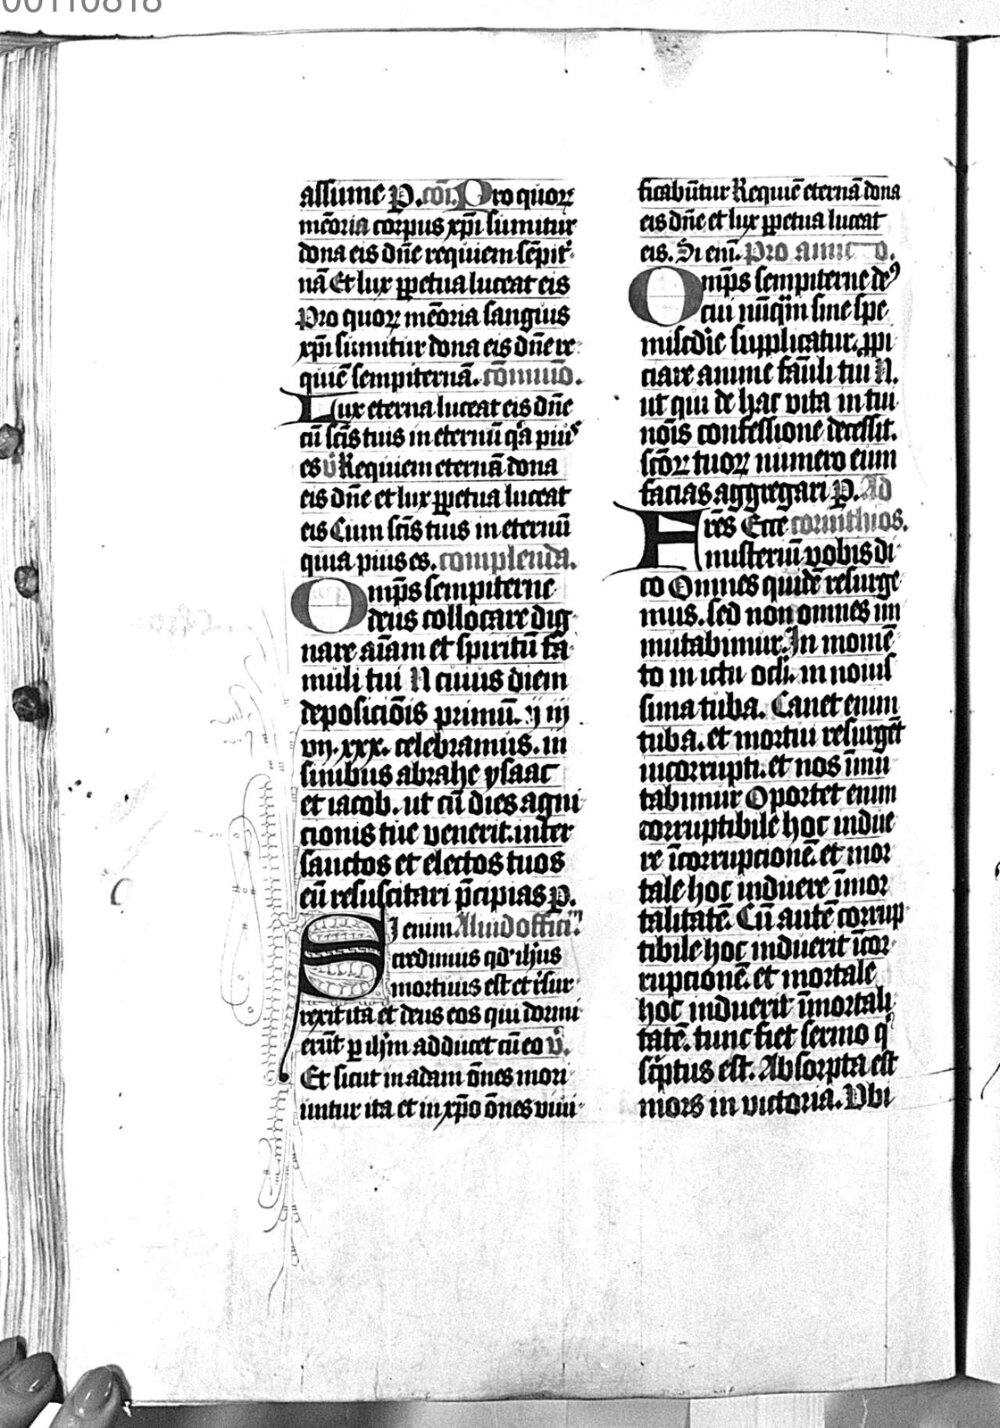 00110818
assume P. cōi. Pro quoꝝ
mēoria corpus xp̄i sumitur
dona eis dn̄e requiem sēpit᷑
nā Et lux ꝑpetua luceat eis
Pro quoꝝ mēoria sangius
xp̄i sumitur dona eis dn̄e re
quiē sempiternā. cōmuio.
Lux eterna luceat eis dn̄e
cū scīs tuis in eternū qͣa piuˢ
es v̄ Requiem eternā dona
eis dn̄e et lux ꝑpetua luceat
eis Cum scīs tuis in eternū
quia pius es. complenda.
Omp̄s sempiterne
deus collocare dig
nare aīam et spiritū fa
muli tui N cuius diem
deposiciōis primū. ij iij
vij. xxx. celebramus. in
sinibus abrahe ysaac
et iacob. ut cū dies agni
cionis tue venerit. inter
sanctos et electos tuos
eū resuscitari p̄cipias P.
Si enim Aliud officiū
credimus qd' ih̄us
mortuus est et resur
rexit ita et deus eos qui dormi
erūt ꝑ ih̄m adducet cū eo v̄.
Et sicut in adam ōnes mori
untur ita et in xp̄o ōnes viui
ficabūtur Requiē eternā dona
eis dn̄e et lux ꝑpetua luceat
eis. Si eni. Pro anno o.
Omp̄s sempiterne deꝰ
cui nūq̄m sine spe
misc̄die supplicatur. ꝓpi
ciare anime fāuli tui N.
ut qui de hac vita in tui
noīs confessione decessit.
scōꝝ tuoꝝ numero eum
facias aggregari P. Ad
Frēs Ecce corinthios.
misteriū vobis di
co Omnes quidē resurge
mus. sed non omnes im
mutabimur. In momē
to in ictu ocl̄i. in nouis
sima tuba. Canet enim
tuba. et mortui resurgēt
incorrupti. et nos īmu
tabimur Oportet enim
corruptibile hoc indue
re īcorrupcionē. et mor
tale hoc induere īmor
talitatē. Cū autē corrup
tibile hoc induerit īcor
rupcionē. et mortale
hoc induerit īmortali
tatē. tunc fiet sermo qͥ
sc̄ptus est. Absorpta est
mors in victoria. Vbi